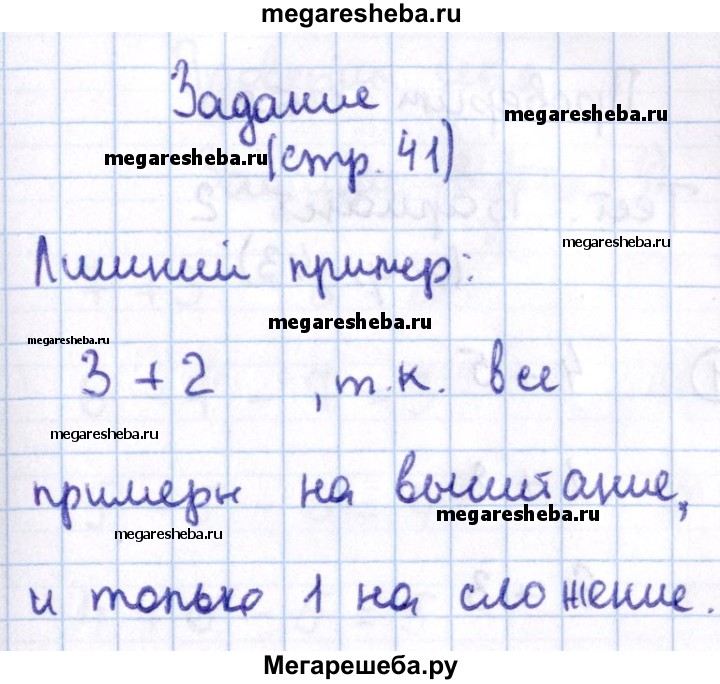 megaresheba.ru
Задание
megaresheba.ru
megaresheba.ru (стр. 41)
megaresheba.ru
Лишний пример:
megaresheba.ru
megaresheba.ru
3 + 2 , т.к. все
megaresheba.ru
примеры на вычитание,
megaresheba.ru
megaresheba.ru
и только 1 на сложение.
Мегарешеба.ру